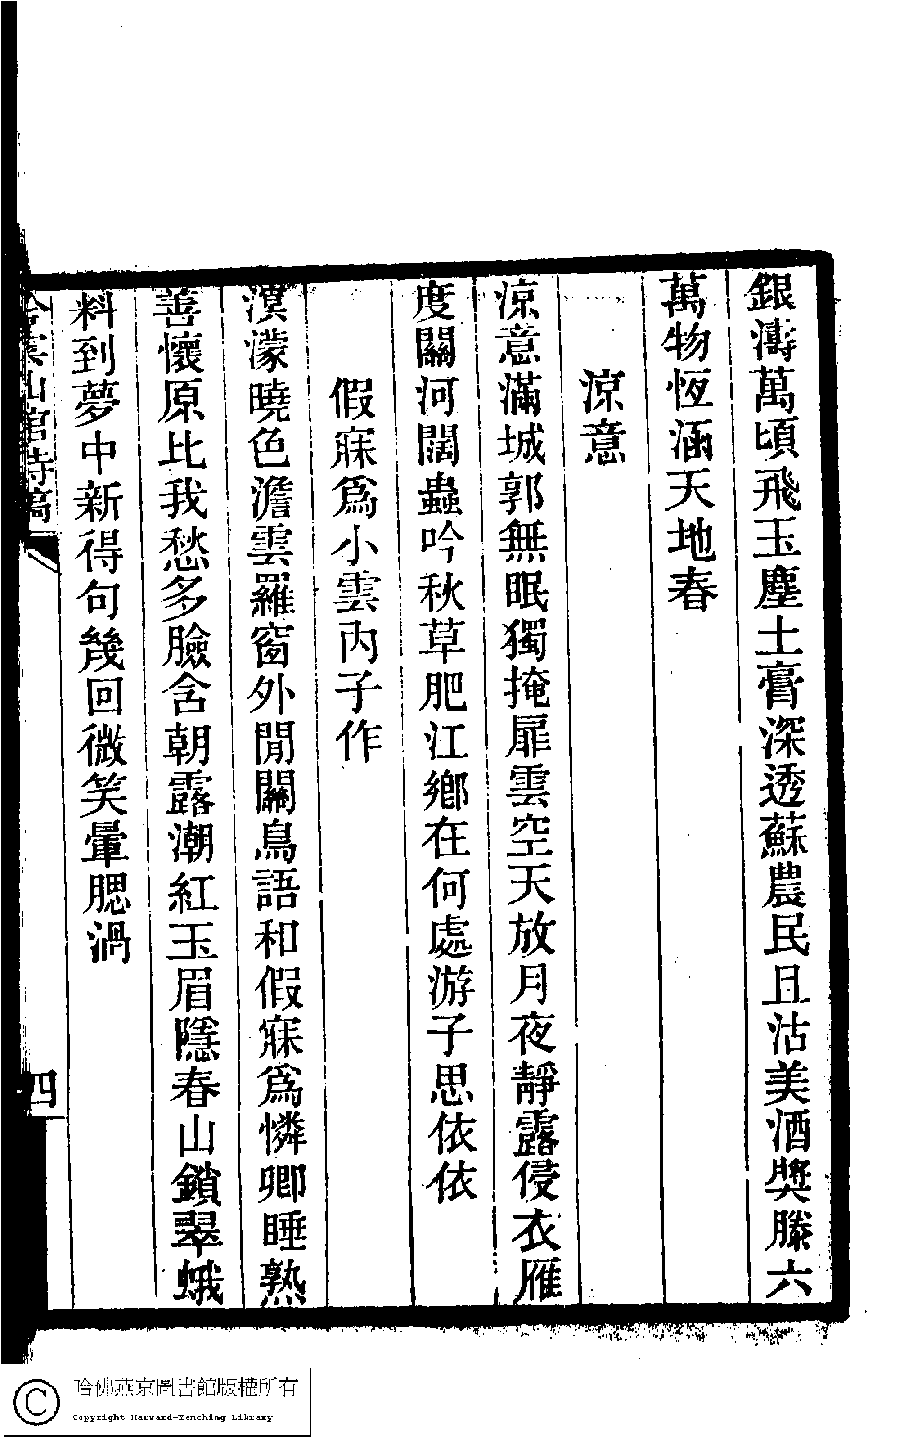 銀濤萬頃飛玉塵土膏深透蘇農民且沽美酒奬滕六
萬物恆涵天地春
涼意
涼意滿城郭無眠獨掩扉雲空天放月夜靜露侵衣雁
度關河闊蟲吟秋草肥江鄉在何處游子思依依
假寐爲小雲內子作
漠濛曉色澹雲羅窗外閒關鳥語和假寐爲憐卿睡熟
善懷原比我愁多臉含朝露潮紅玉眉隱春山鎖翠蛾
料到夢中新得句幾回微笑暈腮渦
山館詩稿
四
哈佛燕京圖書館版權所有
Copyright Harvard-Yenching Library